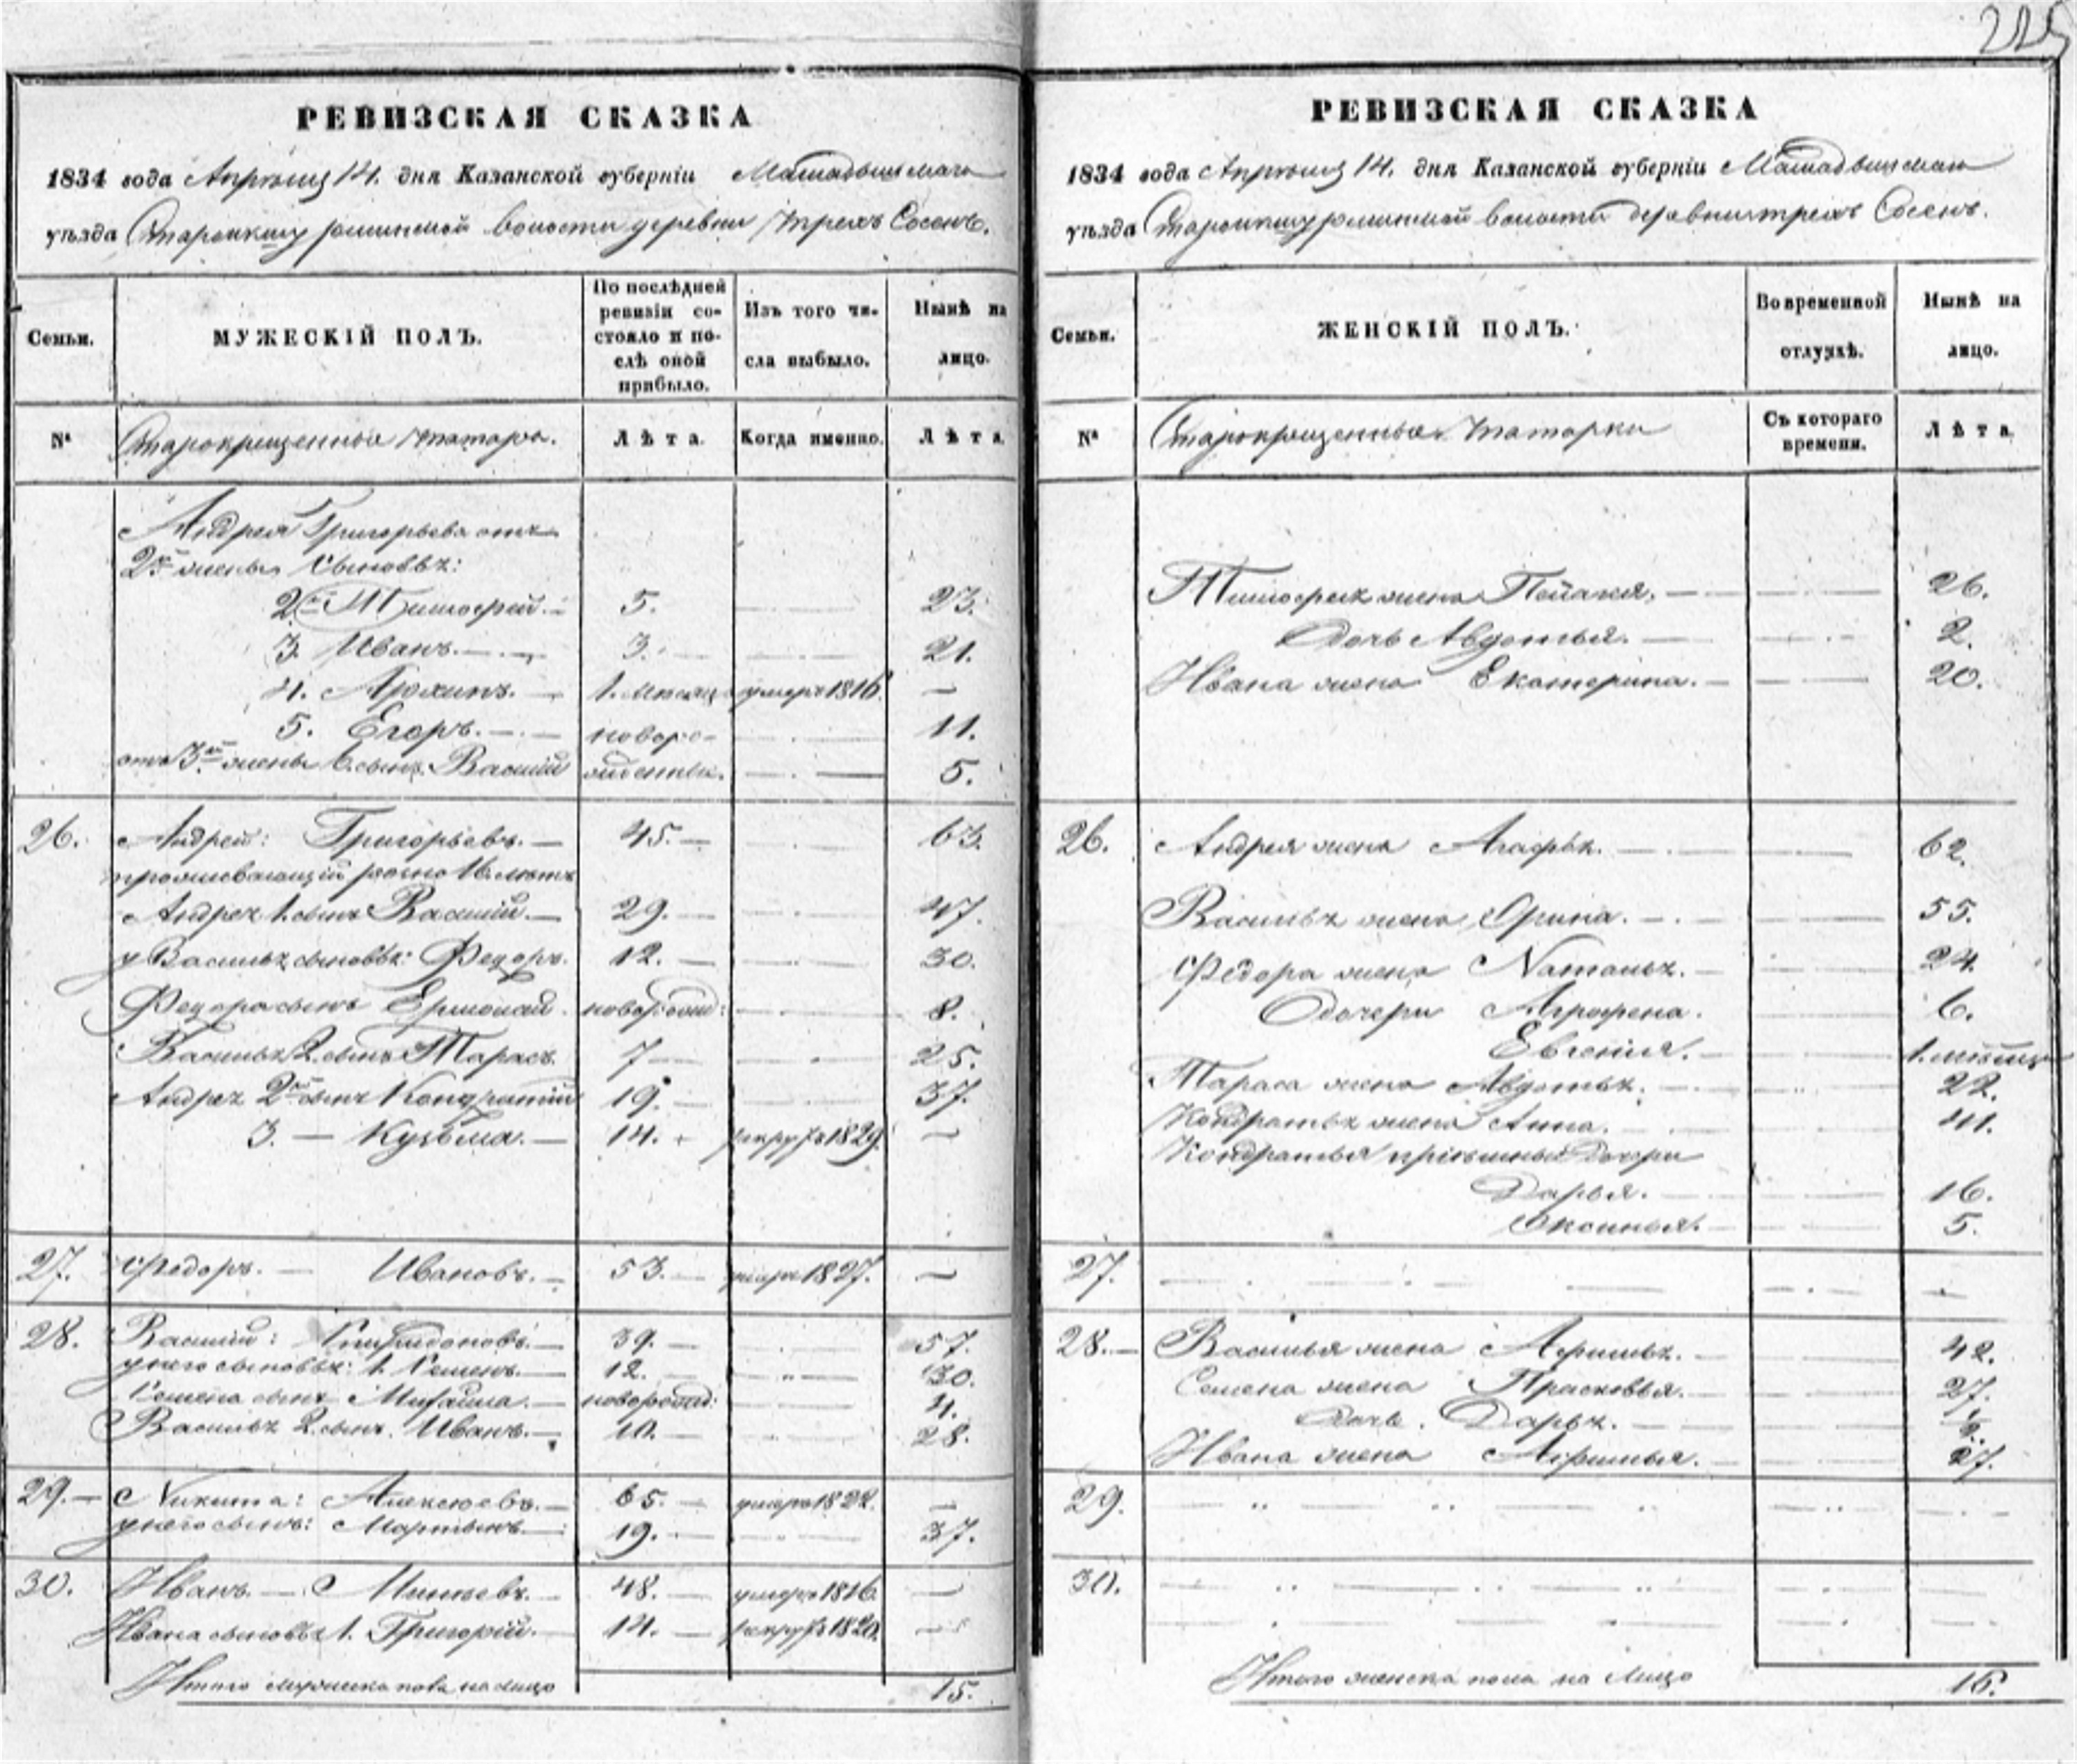 225
РЕВИЗСКАЯ СКАЗКА
1834 года Апрѣля 14. дня Казанской губерніи Мамадышскаго
уѣзда Старокишу волости деревни Трехъ Сосенъ.
Семьи.
МУЖЕСКІЙ ПОЛЪ.
По послѣдней
ревизіи со-
стояло и по-
слѣ оной
прибыло.
Изъ того чи-
сла выбыло.
Нынѣ на
лицо.
№
Старокрещенные татары.
Лѣта.
Когда именно.
Лѣта
Андрея Григорьева отъ
2й жены сыновья:
2й Тимофей. 5. 23.
3. Иванъ. 3. 21.
4. Архипъ. 1. месяц умеръ 1816 —
5. Егоръ. новоро- 11.
отъ 3й жены 6. сынъ Василій жденные. 5.
26. Андрей: Григорьевъ. 45. 63.
16. лѣтъ
Андрея 1. сынъ Василій. 29. 47.
у Василья сыновья: Федоръ. 12. 30.
Федора сынъ Ермолай. новорожд: 8.
Василья 2. сынъ Тарасъ. 7 25.
Андрея 2й сынъ Кондратій 19. 37.
3. — Кузьма. 14. рекру 1829. —
27. Федоръ. — Ивановъ. 53. умеръ 1827. —
28. Василій: Спиридоновъ. 39. 57.
у него сыновья: 1. Семенъ. 12. 30.
Семена сынъ Михайла. новорожд: 4.
Василья 2. сынъ. Иванъ. 10. 28.
29. Никита: Алексѣевъ. 65. умеръ 1822. —
у него сынъ: Мартынъ. 19. 37.
30. Иванъ. — Минѣевъ. 48. умеръ 1816. —
Ивана сыновья 1. Григорій. 14. рекру 1820. —
Итого мужеска пола на лицо 15.
РЕВИЗСКАЯ СКАЗКА
1834 года Апрѣля 14. дня Казанской губерніи Мамадышскаго
уѣзда Старокишу волости деревни трехъ Сосенъ.
Семьи.
ЖЕНСКІЙ ПОЛЪ.
Во временной
отлучкѣ.
Нынѣ на
лицо.
№
Старокрещенные татарки
Съ котораго
времени.
Лѣта
Тимофея жена Пелагея. 26.
Дочь Авдотья. 2.
Ивана жена Екатерина. 20.
26. Андрея жена Агафья. 62.
Василья жена Орина. 55.
Федора жена Наталья. 24.
Дочери Агрофена. 6.
Евгенія. 1. мѣсяц
Тараса жена Авдотья. 22.
Кондратья жена Анна. 41.
Кондратья пріемныя Дочери
Дарья. 16.
Оксинья. 5.
27. —
28. Василья жена Афимья. 42.
Семена жена Прасковья. 27.
Дочь. Дарья. 1/2.
Ивана жена Афимья. 27.
29.
30.
Итого женска пола на лицо 16.